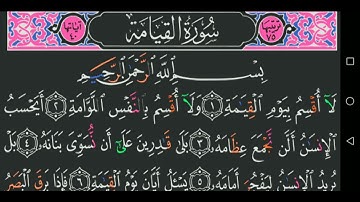 ترتيبها ٧٥ سُورَةُ الْقِيَامَةِ آياتها ٤٠
بِسْمِ اللَّهِ الرَّحْمَٰنِ الرَّحِيمِ
لَآ أُقْسِمُ بِيَوْمِ الْقِيَٰمَةِ ١ وَلَآ أُقْسِمُ بِالنَّفْسِ اللَّوَّامَةِ ٢ أَيَحْسَبُ
الْإِنسَٰنُ أَلَّن نَّجْمَعَ عِظَامَهُۥ ٣ بَلَىٰ قَٰدِرِينَ عَلَىٰٓ أَن نُّسَوِّيَ بَنَانَهُۥ ٤ بَلْ
يُرِيدُ الْإِنسَٰنُ لِيَفْجُرَ أَمَامَهُۥ ٥ يَسْـَٔلُ أَيَّانَ يَوْمُ الْقِيَٰمَةِ ٦ فَإِذَا بَرِقَ الْبَصَرُ